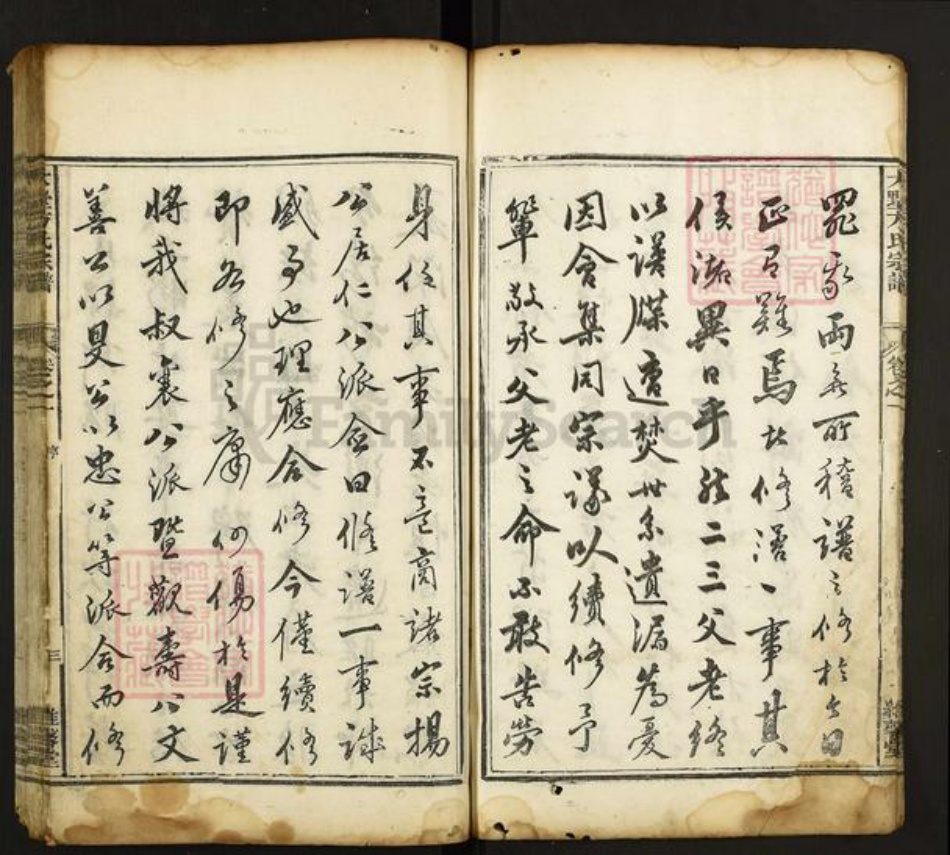 罷我兩無所稽譜之修於今日
正有難焉故修譜一事其
俟諸異日乎然二三父老終
以譜牒遭焚世系遺漏為憂
因會集同宗議以續修予
輩敬承父老之命不敢告勞
身任其事不意商諸宗揚
公居仁公派僉曰修譜一事誠
盛事也理應合修今僅續修
即各修之庸何傷於是謹
將我叔襄公派暨觀壽公文
善公以旻公以忠公等派合而修
氏宗譜
卷之一
序
三
FamilySearch